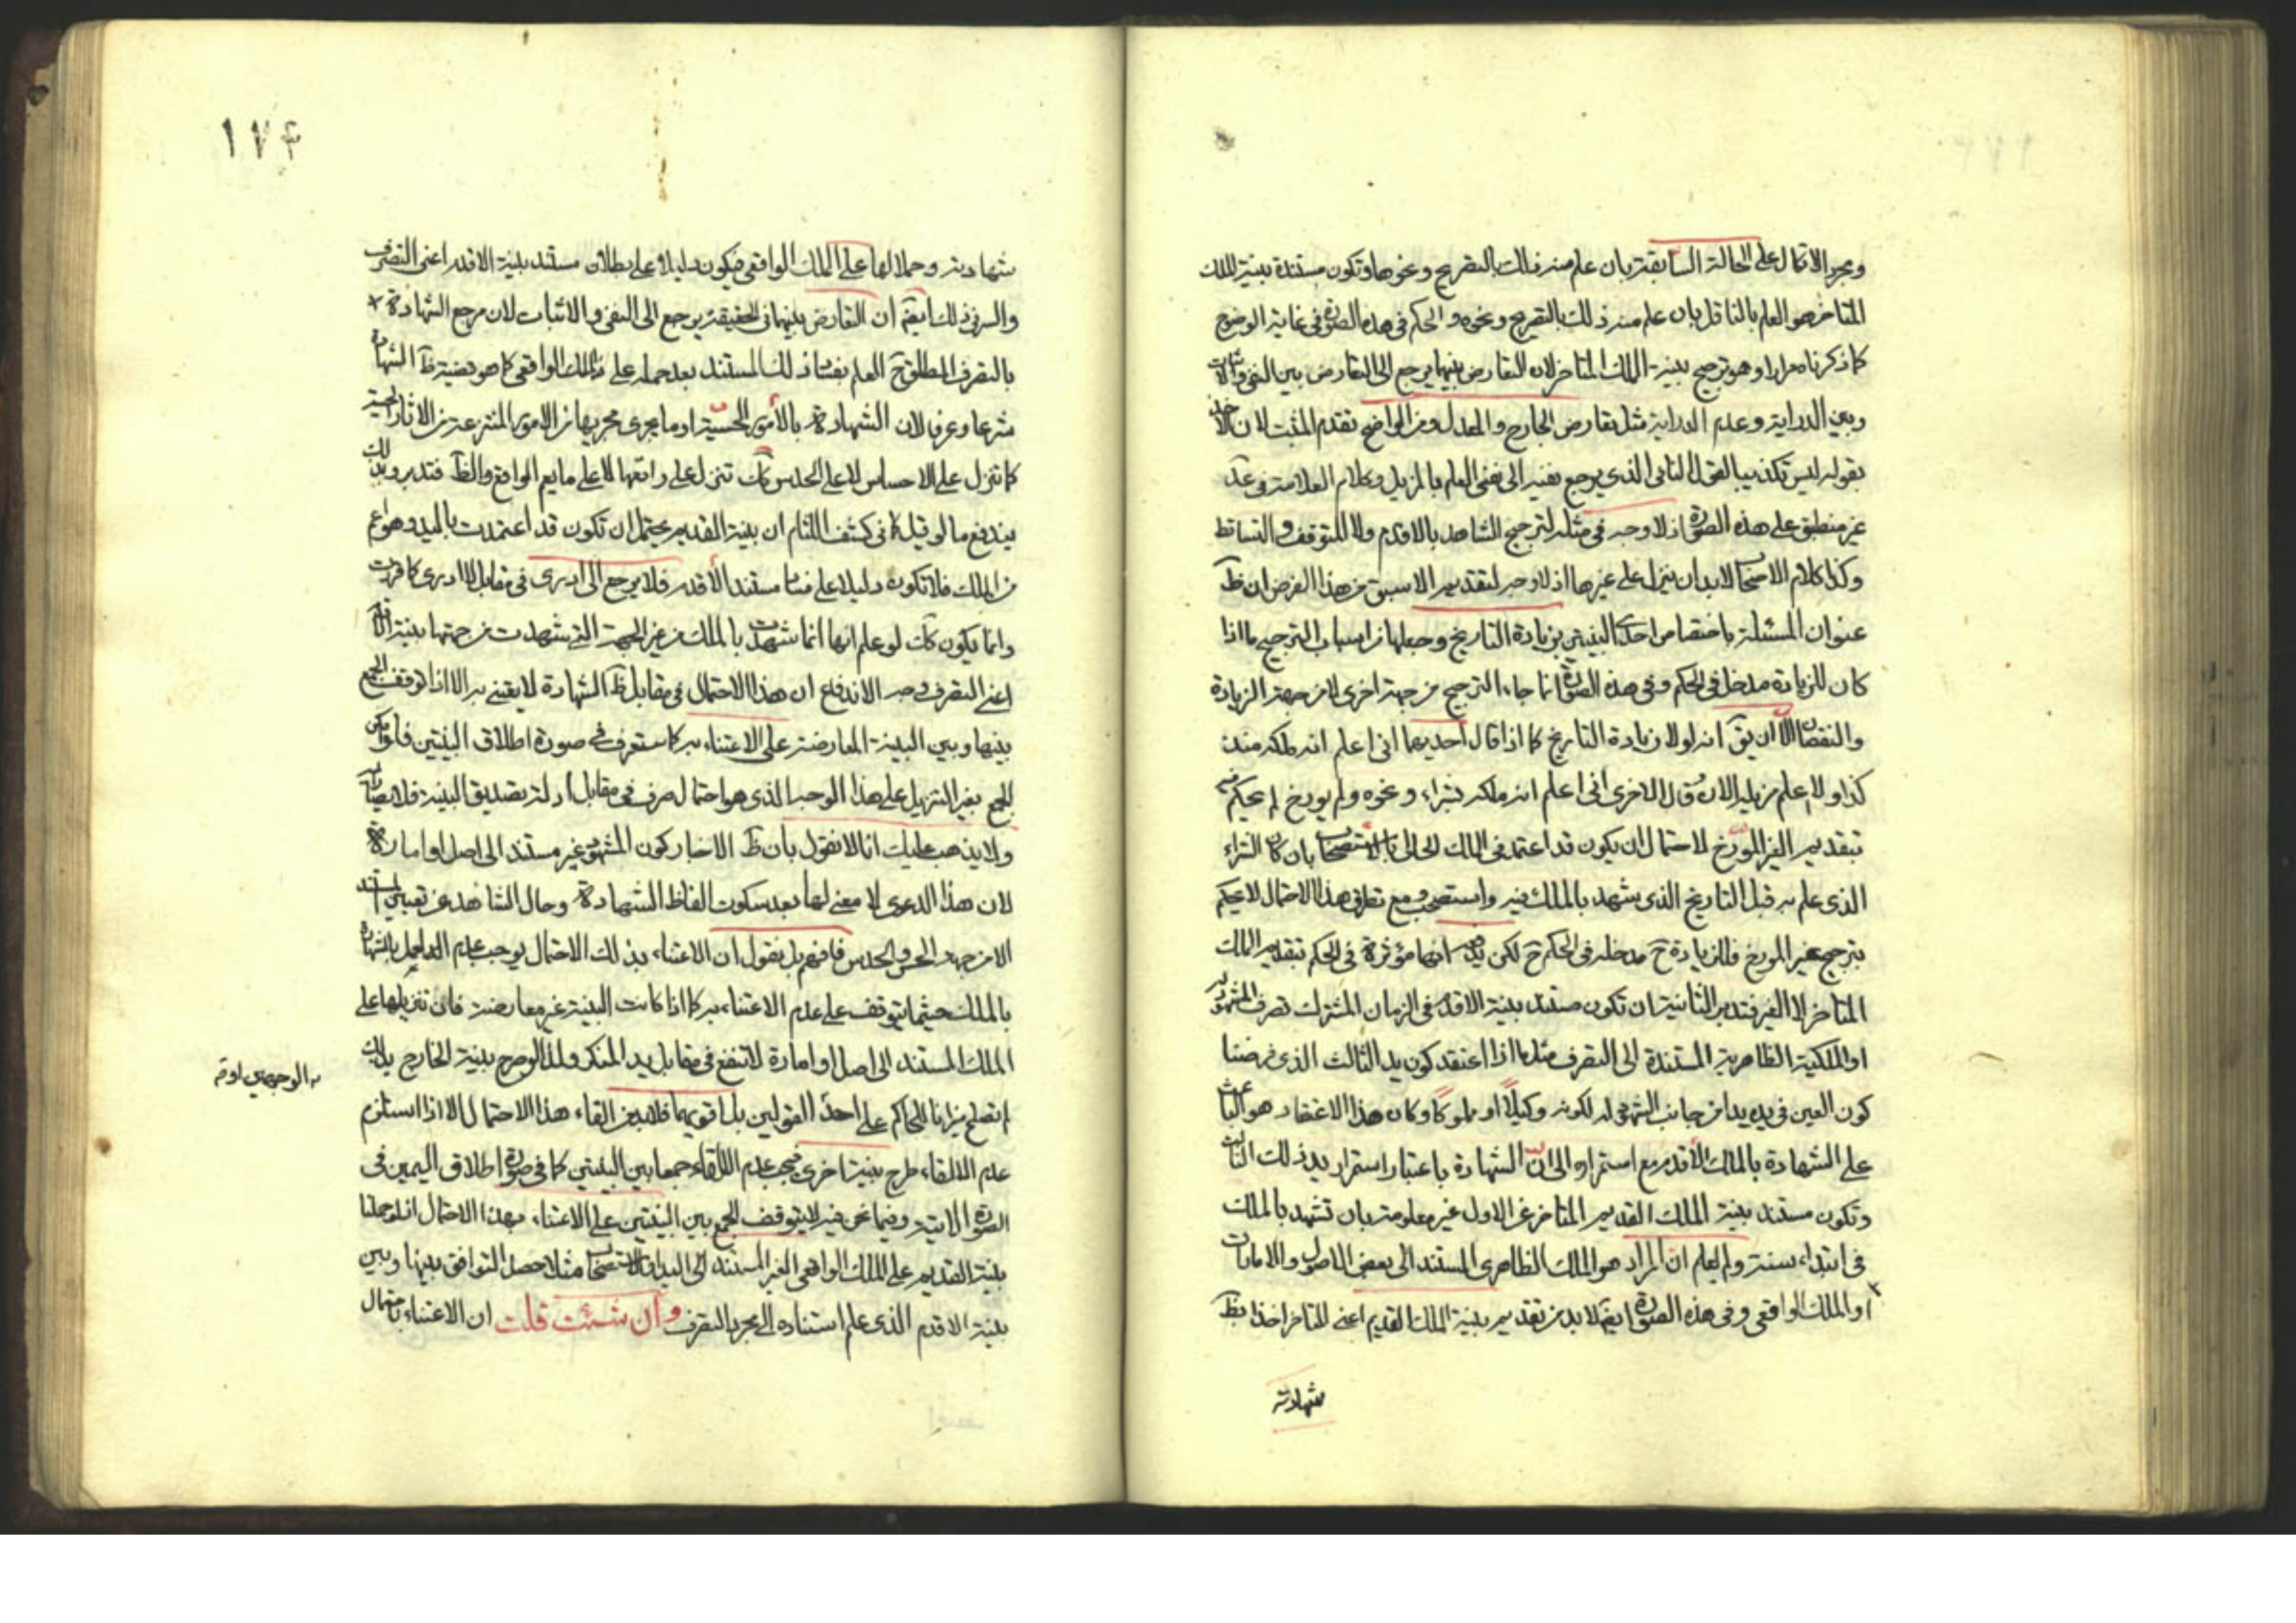 ومجرد الاتكال على الحالة السابقة بان علم منه ذلك بالتصريح ونحوها وتكون مستندة بينة الملك
المتاخر هو العلم بالناقل بان علم منه ذلك بالتصريح ونحوه والحكم فى هذه الصورة فى غاية الوضوح
كما ذكرناه مرارا وهو ترجيح بينة الملك المتاخر لان التعارض بينهما يرجع الى التعارض بين النفى والاثبات
وبين الدراية وعدم الدراية مثل تعارض الجارح والمعدل ومن الواضح تقدم المثبت لان الاخذ
بقوله ليس تكذيبا لقول النافى الذى يرجع نفيه الى نفى العلم بالمزيل وكلام العلامة فى عد
غير منطبق على هذه الصورة اذ لا وجه فى مثله لترجيح الشاهد بالاقدم ولا للتوقف والتساقط
وكذا كلام الاصحاب لابد ان ينزل على غيرها اذ لا وجه لتقديم الاسبق فى هذا الفرض ان ظ
عنوان المسئلة باختصاص احدى البينتين بزيادة التاريخ وجعلها من اسباب الترجيح ما اذا
كان للزيادة مدخل فى الحكم وفى هذه الصورة انما جاء الترجيح من جهة اخرى لا من جهة الزيادة
والنقصان الا ان يق انه لولا زيادة التاريخ كما اذا قال احديهما انى اعلم انه ملكه منذ
كذا ولا اعلم مزيله الان وقال الاخرى انى اعلم انه ملكه بشراء ونحوه ولم يورخ لم يحكم فيه
بتقديم الغير المورخ لاحتمال ان يكون قد اعتمد فى الملك الحالى بالاستصحاب بان كان الشراء
الذى علم به قبل التاريخ الذى شهد بالملك فيه واستصحب ومع تطرق هذا الاحتمال لا يحكم
بترجيح غير المورخ فللزيادة ح مدخلة فى الحكم ح لكن انها مؤثرة فى الحكم بتقديم الملك
المتاخر لا الغير فتدبر الثانية ان تكون مستند بينة الاقدم فى الزمان المشترك تصرف المشهود به
او الملكية الظاهرية المستندة الى التصرف مثلا ما اذا اعتقد كون يد الثالث الذى فرضنا
كون العين فى يده يدا من جانب المشهود له لكونه وكيلا او مملوكا وكان هذا الاعتقاد هو الباعث
على الشهادة بالملك الاقدم مع استمراره الى ان الشهادة باعتبار استمرار يد ذلك الثالث
وتكون مستند بينة الملك القديم المتاخر عن الاول غير معلومة بان تشهد بالملك
فى ابتداء سنة ولم يعلم ان المراد هو الملك الظاهرى المستند الى بعض الاصول والامارات
او الملك الواقعى وفى هذه الصورة ايضا لابد من تقديم بينة الملك القديم اعنى المتاخر اخذا بظ
شهادته
١٧۴
شهادته وحملا لها على الملك الواقعى فيكون دليلا على بطلان مستند بينة الاقدم اعنى التصرف
والسر فى ذلك ايضا ان التعارض بينهما فى الحقيقة يرجع الى النفى والاثبات لان مرجع الشهادة
بالتصرف المطلق ح العلم بفساد ذلك المستند بعد حمله على الملك الواقعى كما هو قضية ظ الشهادة
شرعا وعرفا لان الشهادة بالامور الحسية او ما يجرى مجريها من الامور المنتزعة من الاثار الحسية
كما تنزل على الاحساس لا على الحدس كك تنزل على واقعها لا على ما يعم الواقع والظ فتدبر وبذلك
يندفع ما لو قيل كما فى كشف اللثام ان بينة القديم يحتمل ان تكون قد اعتمدت باليد وهو اعم
من الملك فلا تكون دليلا على فساد مستند الاقدم فلا يرجع الى ادرى فى مقابل لا ادرى كما قررت
وانما يكون كك لو علم انها انما شهدت بالملك من غير الجهة التى شهدت من جهتها بينة
اعنى التصرف وجه الاندفاع ان هذا الاحتمال فى مقابل ظ الشهادة لا يعتنى به الا اذا توقف الجمع
بينها وبين البينة المعارضة على الاعتناء به كما ستعرف فى صورة اطلاق البينتين فلو امكن
الجمع بغير التنزيل على هذا الوجه الذى هو احتمال صرف فى مقابل ادلة تصديق البينة فلا يصار اليه
ولا يذهب عليك انا لا نقول بان ظ الاخبار كون المشهود غير مستند الى اصل او امارة
لان هذا الدعوى لا معنى لها بعد سكوت الفاظ الشهادة وحال الشاهد عن تعيين المستند
الا من جهة الحس والحدس فافهم بل نقول ان الاعتناء بذلك الاحتمال يوجب عدم العمل بالشهادة
بالملك حيثما يتوقف على عدم الاعتناء به كما اذا كانت البينة غير معارضة فان تنزيلها على
الملك المستند الى اصل او امارة لا تنفع فى مقابل يد المنكر ولذا لو صرح بينة الخارج بذلك
لم تصلح ميزانا للحاكم على احد القولين بل اقويهما فلابد من القاء هذا الاحتمال الا اذا استلزم
عدم الالقاء طرح بينة اخرى فيجب عدم الالقاء جمعا بين البينتين كما فى صورة اطلاق اليمين فى
الصورة الاتية وفيما نحن فيه لا يتوقف الجمع بين البينتين على الاعتناء بهذا الاحتمال اذ لو حملنا
بينة القديم على الملك الواقعى الغير المستند الى اليد او الاستصحاب مثلا حصل التوافق بينها وبين
بينة الاقدم الذى علم استناده الى مجرد التصرف وان شئت قلت ان الاعتناء باحتمال
الوجهين اوقه